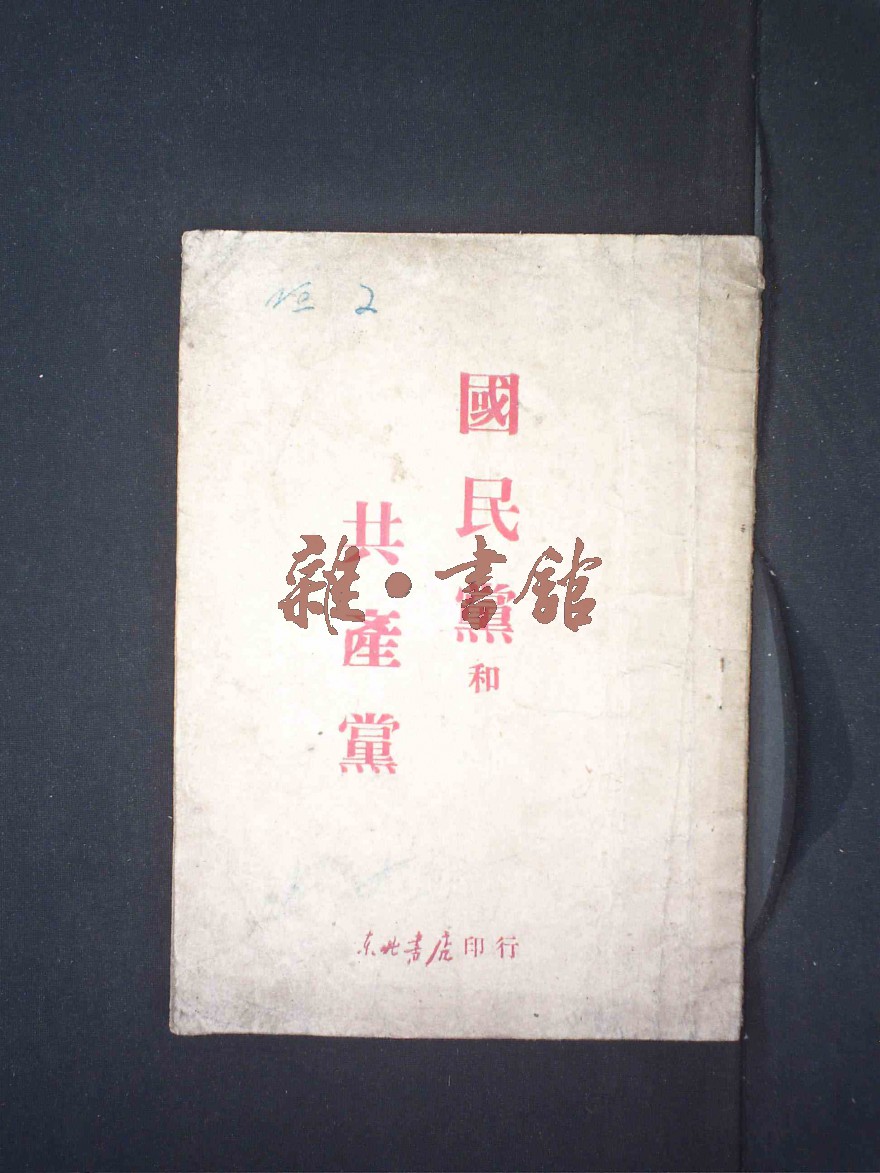 國民黨和
共產黨
东北書店印行
雜·書館